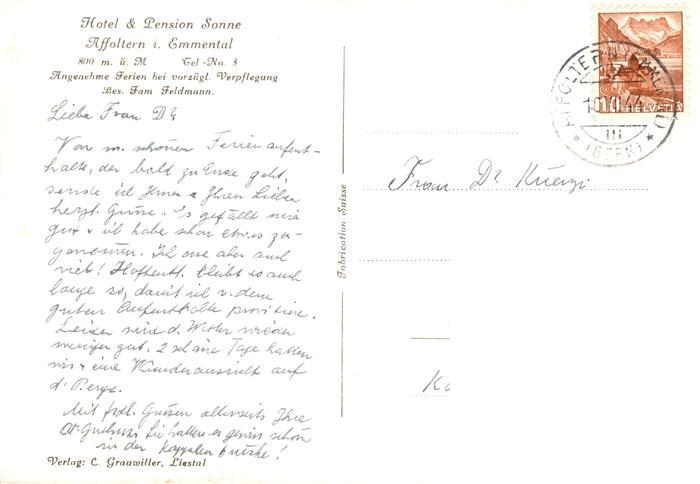 Hotel & Pension Sonne
Affoltern i. Emmental
800 m. ü. M Tel-No. 3
Angenehme Ferien bei vorzügl. Verpflegung
Bes. Fam Feldmann.
Liebe Frau Dr
Von m. schönen Ferienaufent-
halte, der bald zu Ende geht,
sende ich Ihnen & Ihren Lieben
herzl. Grüsse. 's gefällt mir
gut & ich habe schon etwas zu-
genommen. Ich esse aber auch
viel! Hoffentl. bleibt es auch
lange so, damit ich v. dem
guten Aufenthalte profitiere.
Leider wird d. Wetter wieder
weniger gut. 2 schöne Tage hatten
wir & eine Wunderaussicht auf
d' Berge.
Mit frdl. Grüssen allerseits Ihre
Sie hatten es gewiss schön
in der
Verlag: C. Grauwiller, Liestal
Fabrication Suisse
AFFOLTERN (EMMENTAL)
(BERN)
III
10
HELVETIA
Frau Dr. Kuenzi